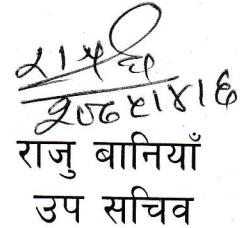 २०८१।४।६
राजु बानियाँ
उप सचिव